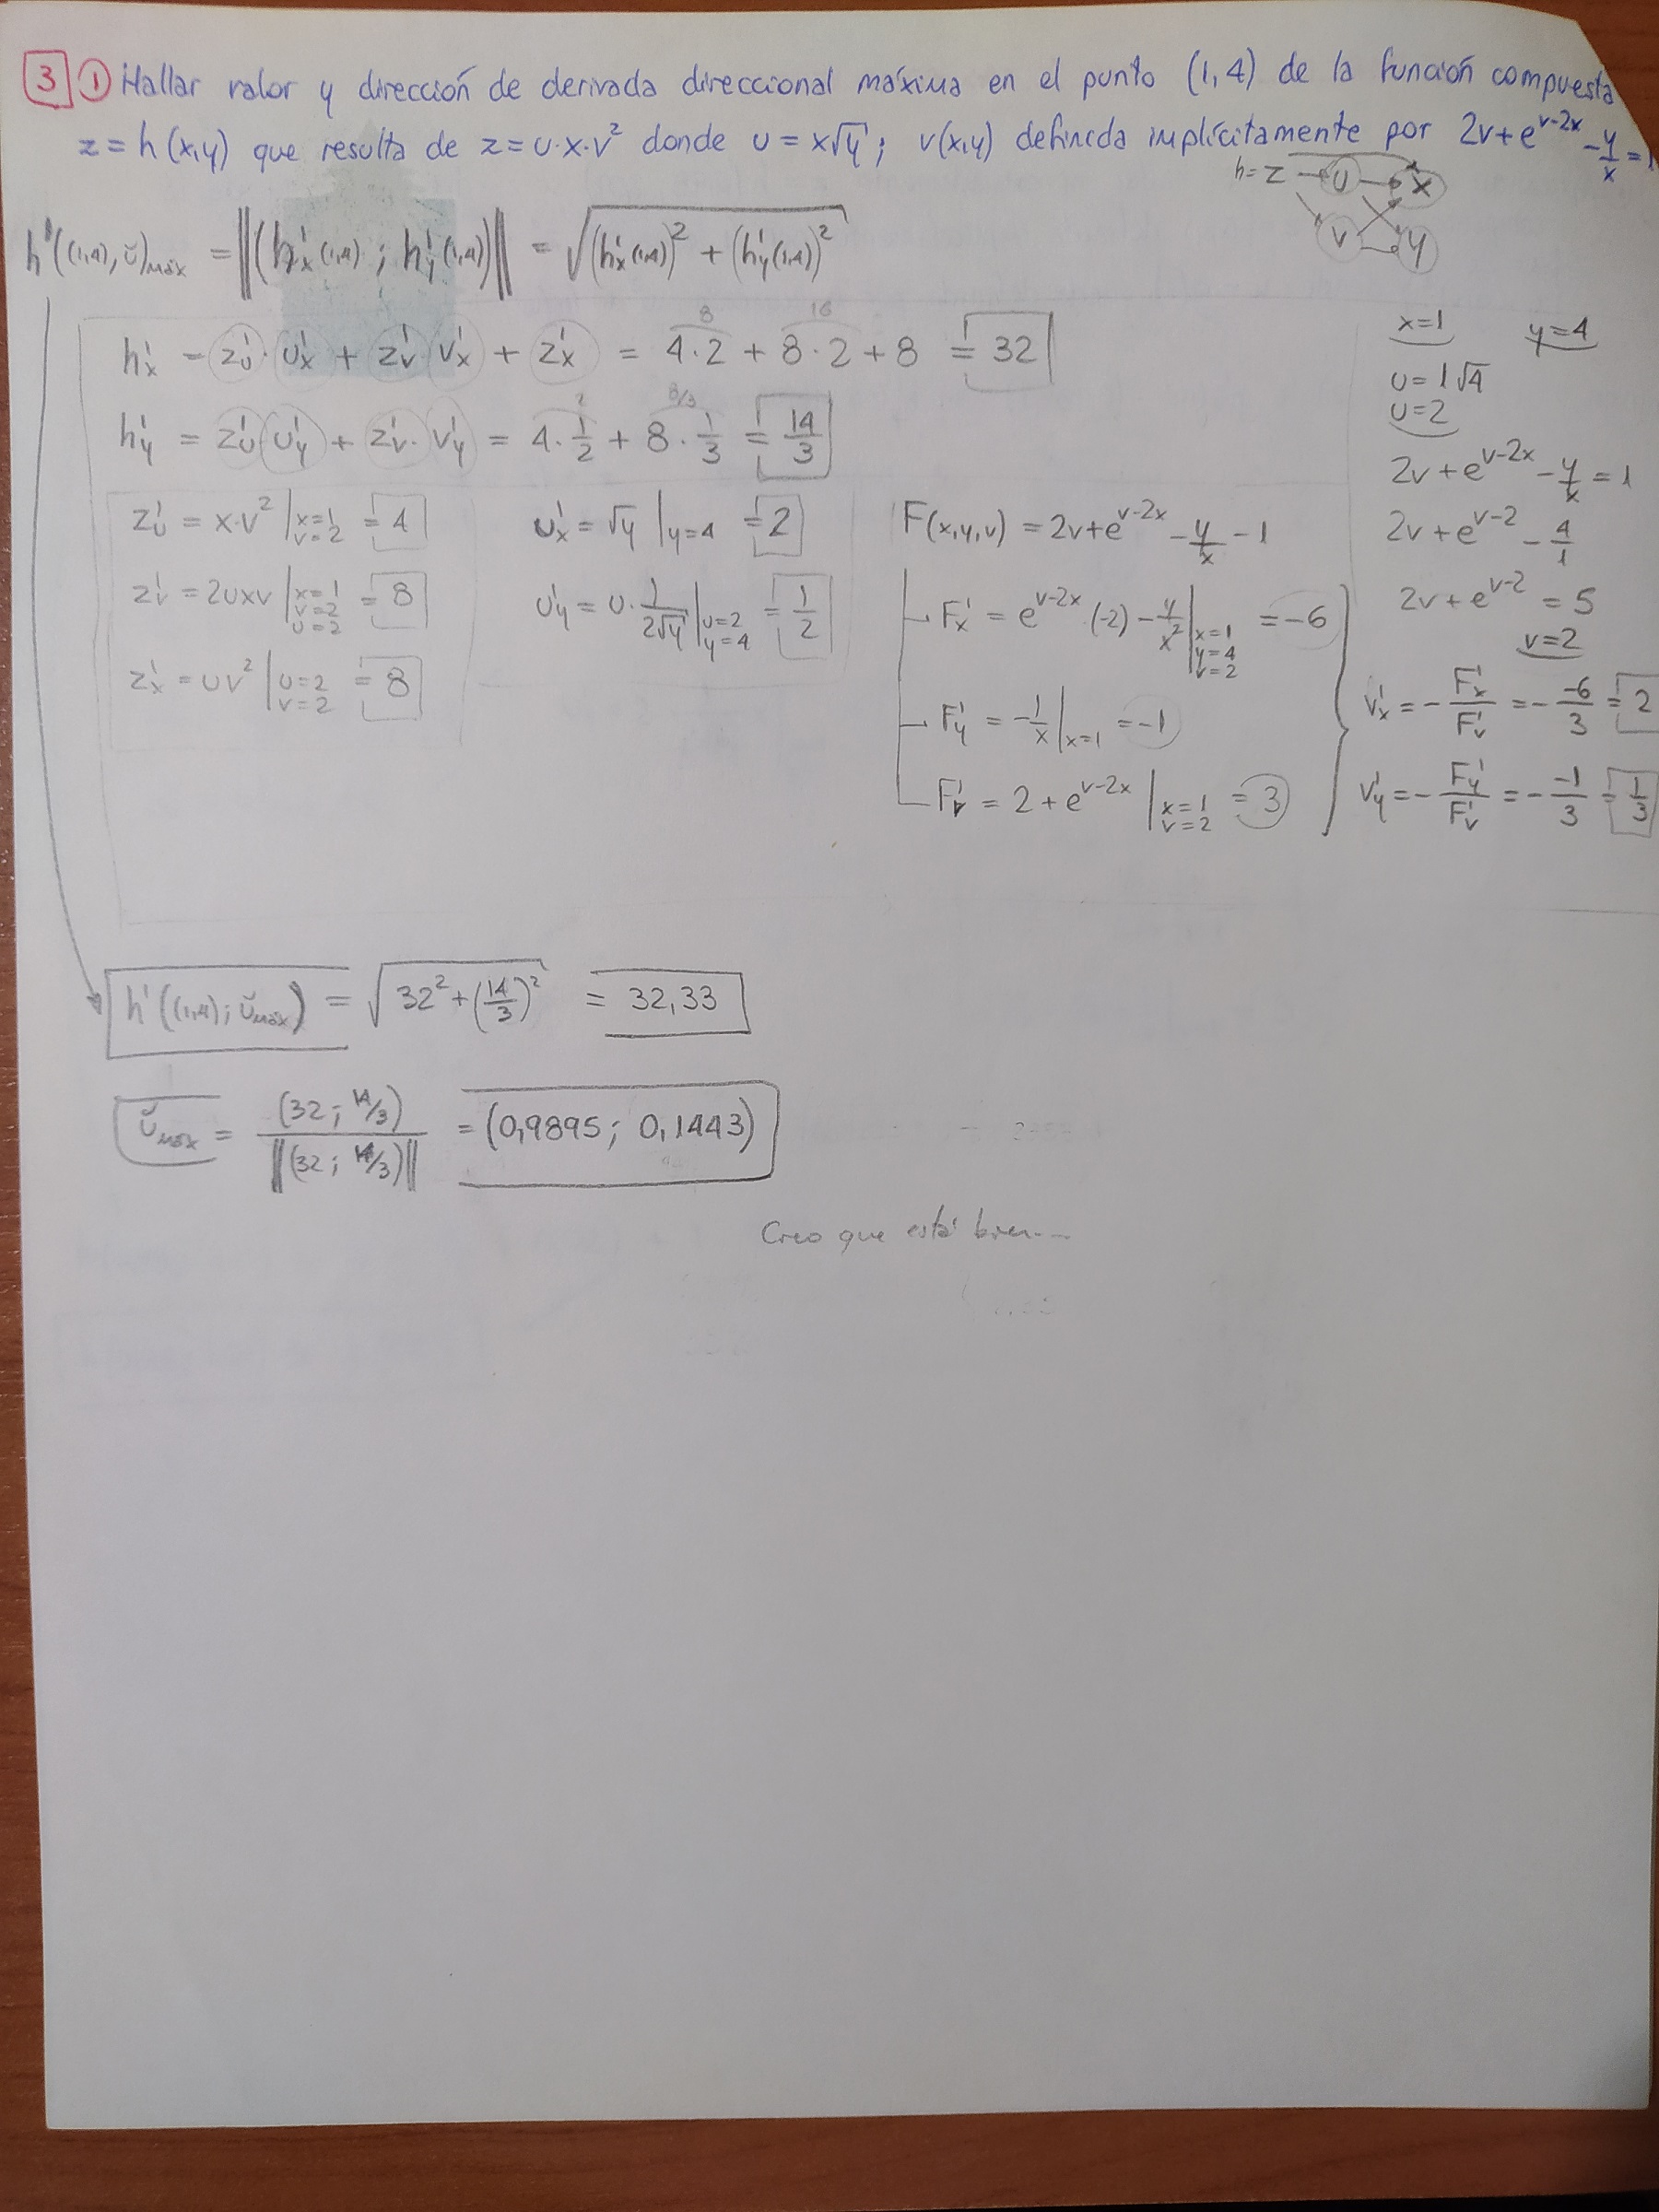 3 ① Hallar valor y dirección de derivada direccional máxima en el punto (1,4) de la función compuesta
z = h(x,y) que resulta de z = u·x·v² donde u = x√y ; v(x,y) definida implícitamente por 2v + e^(v-2x) - y/x = 1
h = z → u → x
v → y
h'((1,4), ŭ)máx = ||(h'x(1,4) ; h'y(1,4))|| = √((h'x(1,4))² + (h'y(1,4))²)
8 16
h'x = z'u · u'x + z'v · v'x + z'x = 4·2 + 8·2 + 8 = 32
2 8/3
h'y = z'u · u'y + z'v · v'y = 4·1/2 + 8·1/3 = 14/3
z'u = x·v² | x=1 v=2 = 4
z'v = 2uxv | x=1 v=2 u=2 = 8
z'x = uv² | u=2 v=2 = 8
u'x = √y | y=4 = 2
u'y = u · 1/(2√y) | u=2 y=4 = 1/2
F(x,y,v) = 2v + e^(v-2x) - y/x - 1
F'x = e^(v-2x) · (-2) - y/x² | x=1 y=4 v=2 = -6
F'y = -1/x | x=1 = -1
F'v = 2 + e^(v-2x) | x=1 v=2 = 3
x=1 y=4
u = 1√4
u = 2
2v + e^(v-2x) - y/x = 1
2v + e^(v-2) - 4/1
2v + e^(v-2) = 5
v = 2
v'x = - F'x/F'v = - -6/3 = 2
v'y = - F'y/F'v = - -1/3 = 1/3
h'((1,4) ; ŭmáx) = √(32² + (14/3)²) = 32,33
ŭmáx = (32 ; 14/3) / ||(32 ; 14/3)|| = (0,9895 ; 0,1443)
Creo que está bien...